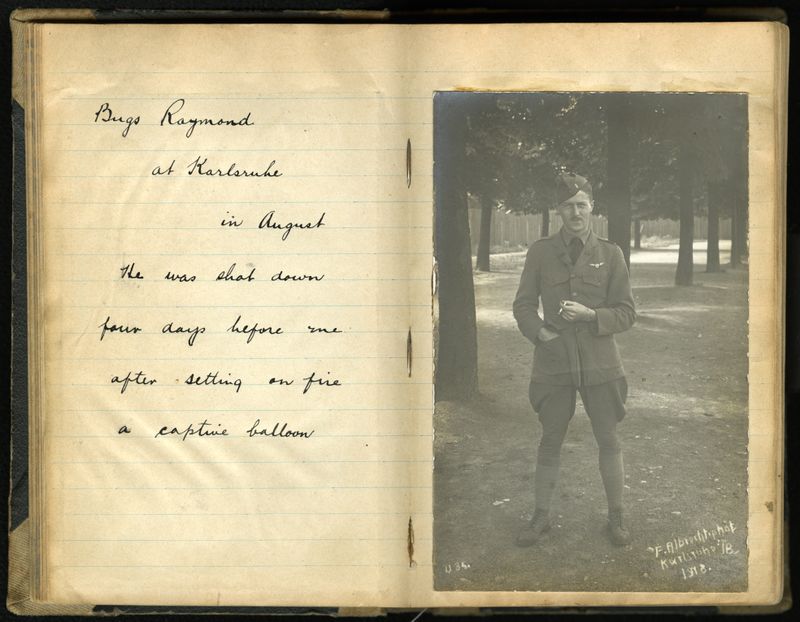 Bugs Raymond
at Karlsruhe
in August
He was shot down
four days before me
after setting on fire
a captive balloon
U 34.
F. Albrecht phot
Karlsruhe i/B
1918.